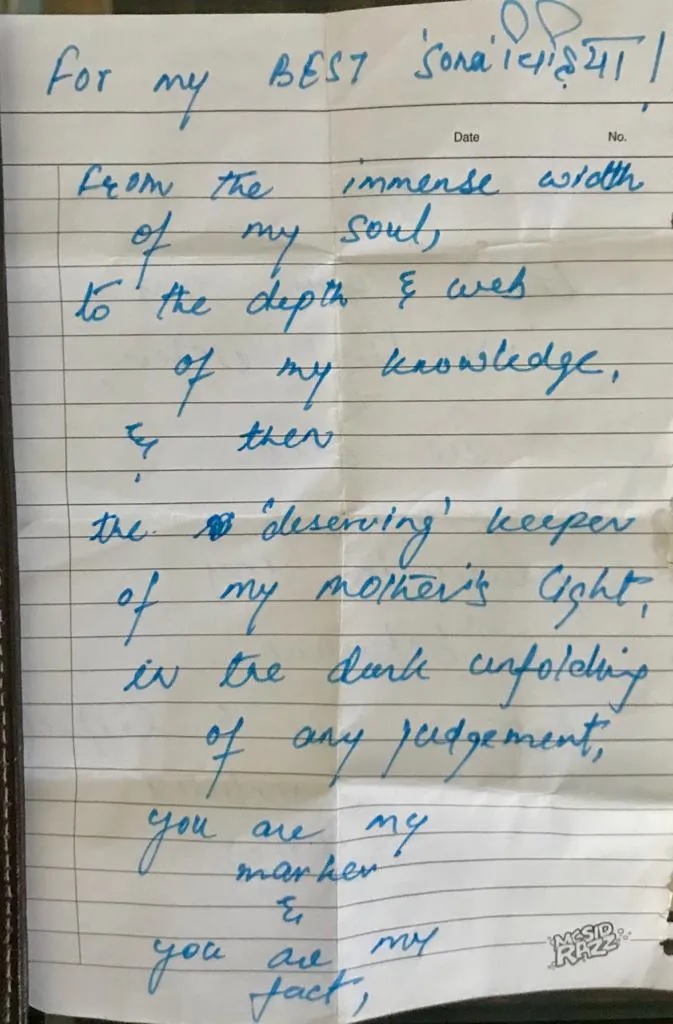 For my BEST 'Sona'
Date No.
From the immense width
of my soul,
to the depth & web
of my knowledge,
& then
the 'deserving' keeper
of my mother's light,
in the dark unfolding
of any judgement,
you are my
marker
&
you are my
fact,
MCSID
RAZZ